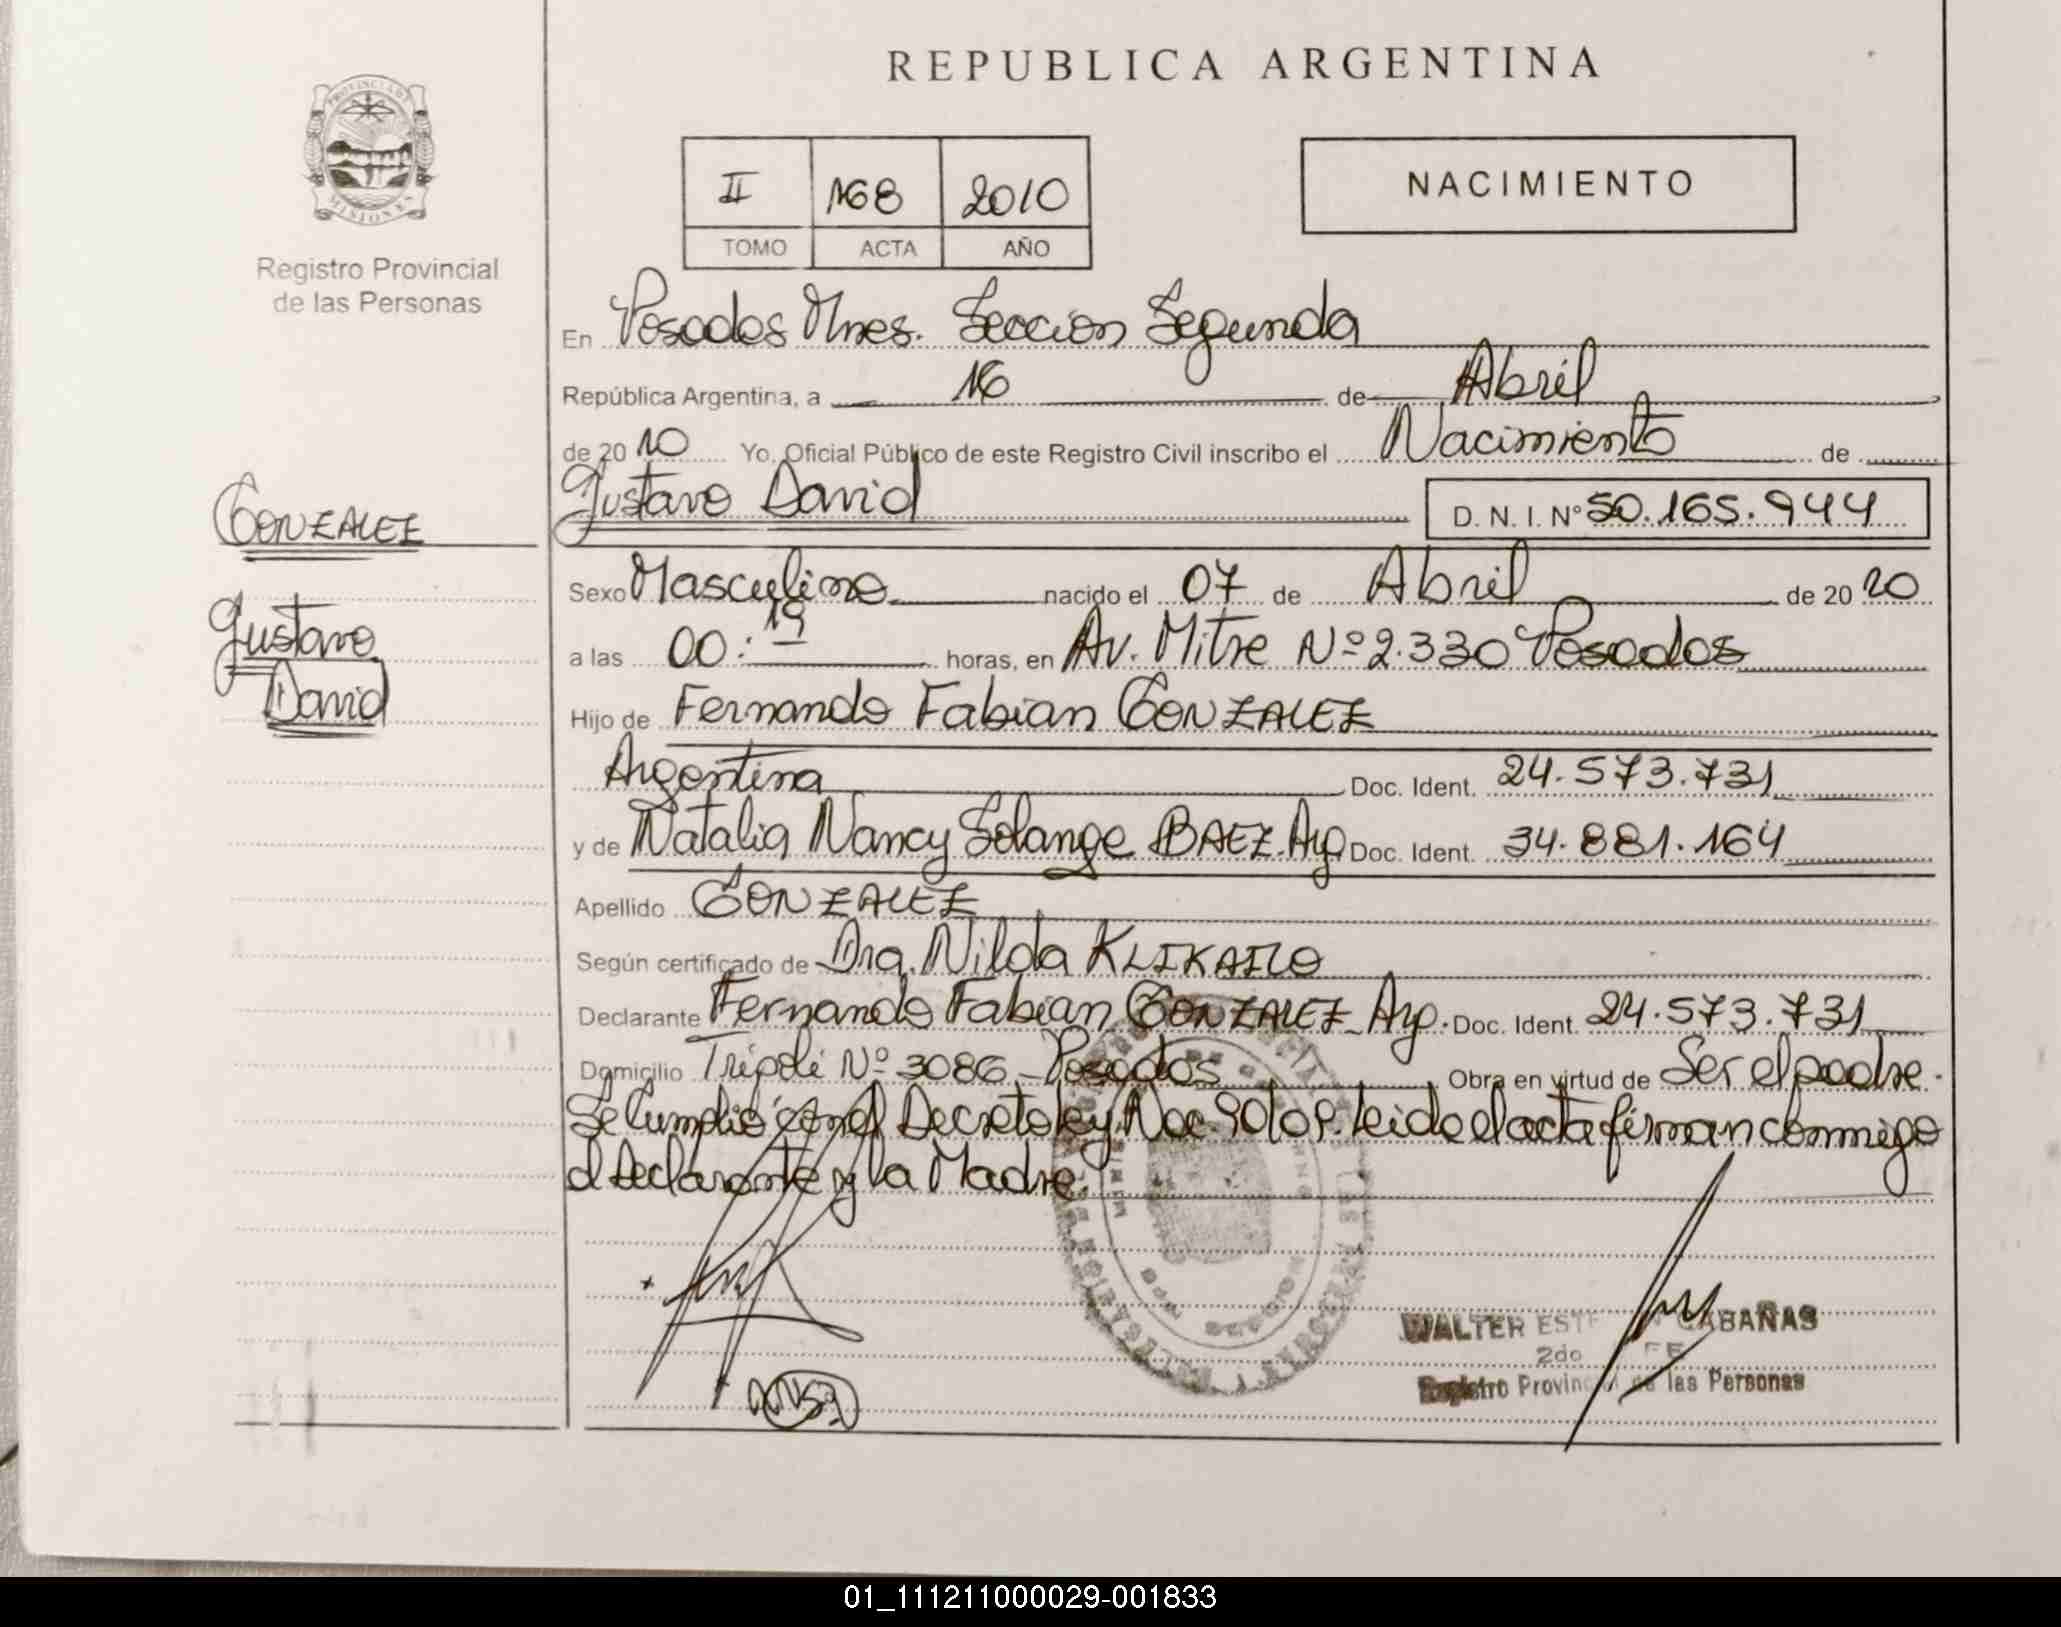 REPUBLICA ARGENTINA
PROVINCIA DE
MISIONES
Registro Provincial
de las Personas
II 168 2010
TOMO ACTA AÑO
NACIMIENTO
En Posadas Mnes. Sección Segunda
República Argentina, a 16 de Abril
de 2010 Yo, Oficial Público de este Registro Civil inscribo el Nacimiento de
Gustavo David D. N. I. Nº 50.165.944
GONZALEZ
Gustavo
David
Sexo Masculino nacido el 07 de Abril de 2010
a las 00:19 horas, en Av. Mitre Nº 2.330 Posadas
Hijo de Fernando Fabian GONZALEZ
Argentina Doc. Ident. 24.573.731
y de Natalia Nancy Solange BAEZ. Arg Doc. Ident. 34.881.164
Apellido GONZALEZ
Según certificado de Dra. Nilda KLIKAILO
Declarante Fernando Fabian GONZALEZ Arg. Doc. Ident. 24.573.731
Domicilio Tripoli Nº 3086 - Posadas Obra en virtud de Ser el padre.
Se Cumplió con el Decreto ley Nac. Leida el acta firman conmigo
el Declarante y la Madre.
WALTER CABAÑAS
2do
Registro Provincial de las Personas
01_111211000029-001833